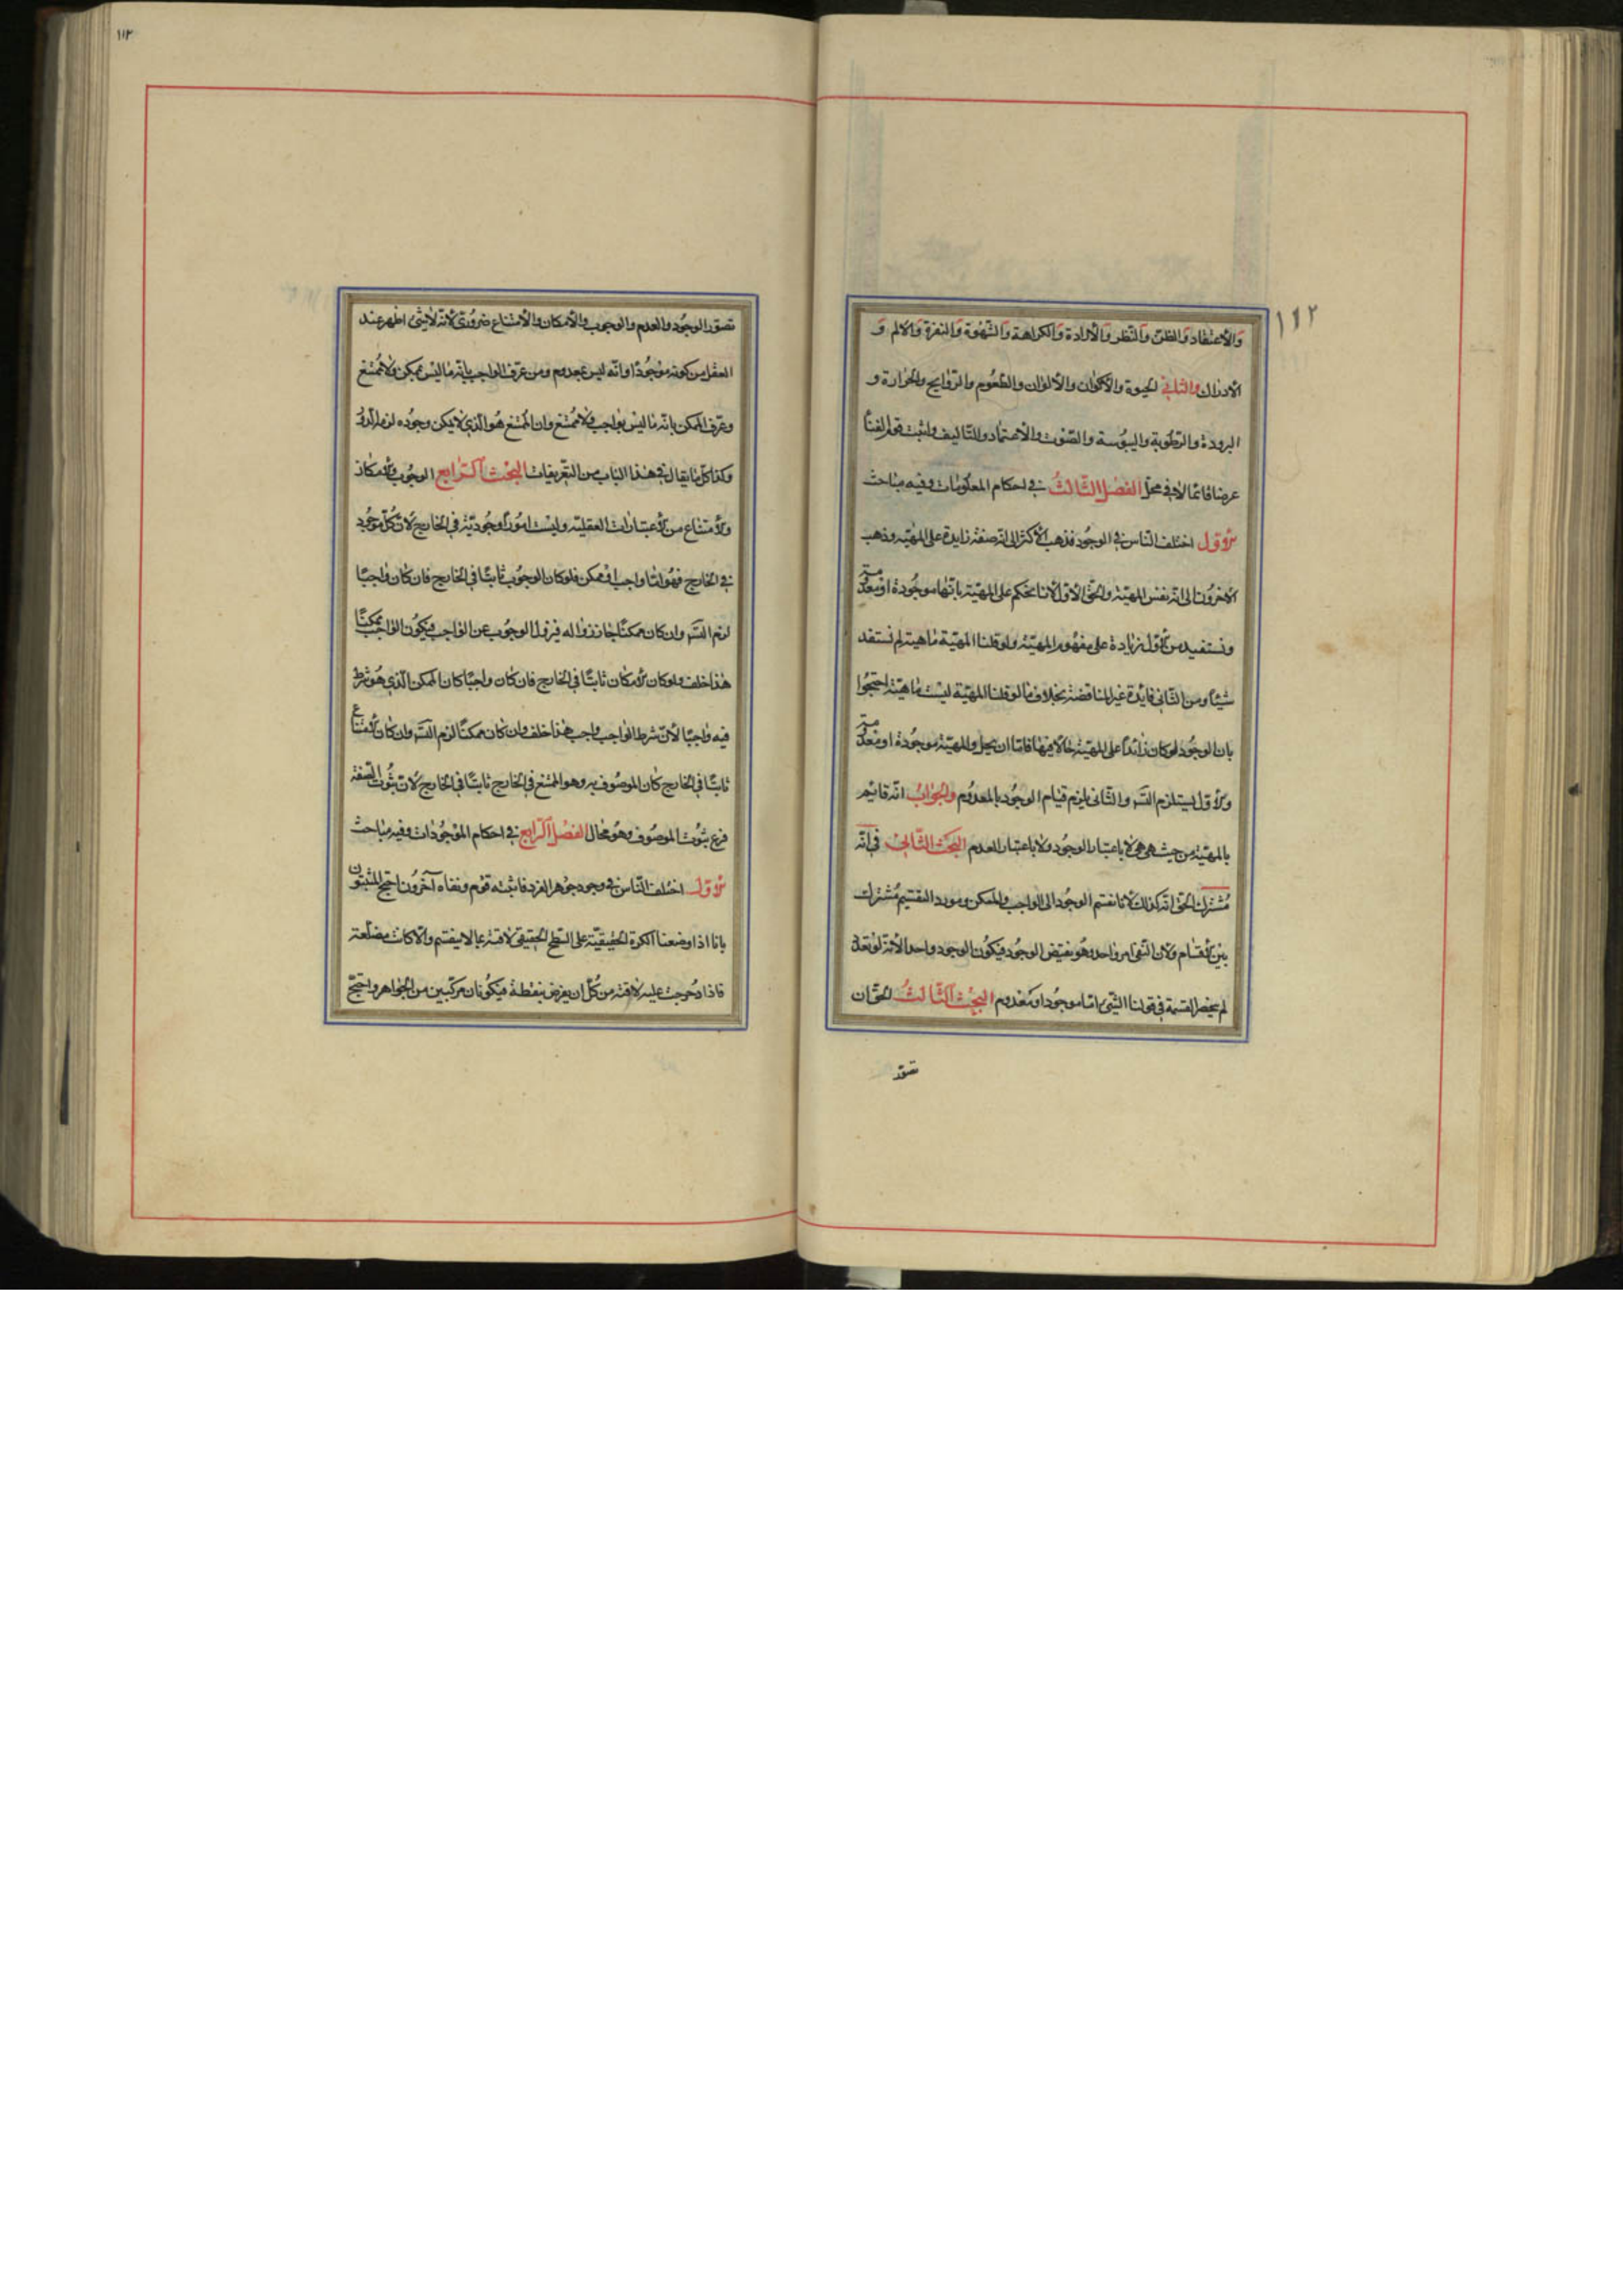 ١١٢
والأعتقاد والظن والنظر والأرادة والكراهة والشهوة والنفرة والالم و
الأدراك والثاني الحيوة والأكوان والألوان والطعوم والروايح والحرارة و
البرودة والرطوبة واليبوسة والصوت والأعتماد والتاليف واثبت قوم الفنا
عرضا قائما لا في محل الفصل الثالث في احكام المعلومات وفيه مباحث
الأول اختلف الناس في الوجود فذهب الأكثر الى انه صفة زايدة على المهية وذهب
الاخرون الى انه نفس المهية والحق الأول لأنا نحكم على المهية بانها موجودة او معدومة
ونستفيد من الأول زيادة على مفهوم المهية ولو قلنا المهية ماهية لم نستفد
شيئا ومن الثاني فايدة غير المناقضة بخلاف ما لو قلنا المهية ليست ماهية احتجوا
بان الوجود لو كان زائدا على المهية حالا فيها فاما ان يحل والمهية موجودة او معدومة
والأول يستلزم التس والثاني يلزم قيام الوجود بالمعدوم والجواب انه قائم
بالمهية من حيث هي هي لا باعتبار الوجود ولا باعتبار العدم البحث الثاني في انه
مشترك الحق انه كذلك لأنا نقسم الوجود الى الواجب والممكن ومورد التقسيم مشترك
بين الأقسام ولأن النفي امر واحد وهو نقيض الوجود فيكون الوجود واحدا لأنه لو تعدد
لم ينحصر القسمة في قولنا الشئ اما موجود او معدوم البحث الثالث الحق ان
تصور
١١٣
تصور الوجود والعدم والوجوب والأمكان والأمتناع ضروري لأنه لا شئ اظهر عند
العقل من كونه موجودا وانه ليس بمعدوم ومن عرف الواجب بانه ما ليس بممكن ولا ممتنع
وعرف الممكن بانه ما ليس بواجب ولا ممتنع وان الممتنع هو الذي لا يمكن وجوده لزمه الدور
وكذا كل ما يقال في هذا الباب من التعريفات البحث الرابع الوجوب والأمكان
والأمتناع من الأعتبارات العقلية وليست امورا وجودية في الخارج لان كل موجود
في الخارج فهو اما واجب او ممكن فلو كان الوجوب ثابتا في الخارج فان كان واجبا
لزم التس وان كان ممكنا جاز زواله فيزول الوجوب عن الواجب فيكون الواجب ممكنا
هذا خلف ولو كان الأمكان ثابتا في الخارج فان كان واجبا كان الممكن الذي هو شرط
فيه واجبا لأن شرط الواجب واجب هذا خلف وان كان ممكنا لزم التس وان كان الأمتناع
ثابتا في الخارج كان الموصوف به وهو الممتنع في الخارج ثابتا في الخارج لان ثبوت الصفة
فرع ثبوت الموصوف وهو محال الفصل الرابع في احكام الموجودات وفيه مباحث
الأول اختلف الناس في وجود جوهر الفرد فاثبته قوم ونفاه آخرون احتج المثبتون
بانا اذا وضعنا الكرة الحقيقية على السطح الحقيقي لاقته بما لا ينقسم والا كانت مضلعة
فاذا دحرجت عليه لاقته من كل ان يفرض بنقطة فيكونان مركبين من الجواهر واحتج